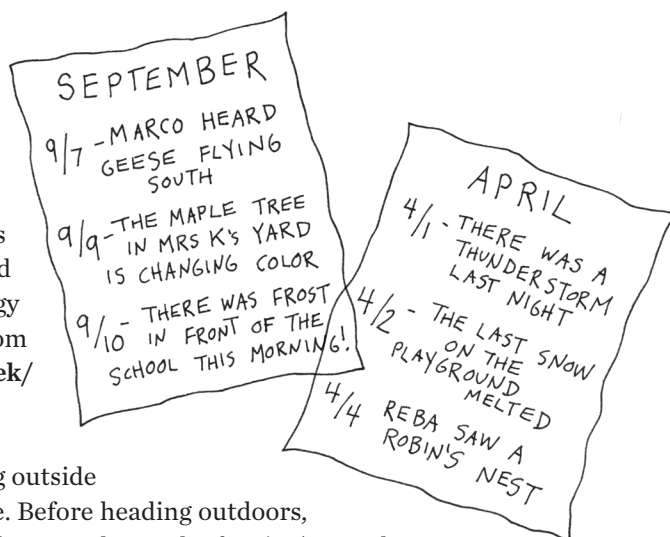 SEPTEMBER
9/7 - MARCO HEARD
GEESE FLYING
SOUTH
9/9 - THE MAPLE TREE
IN MRS K's YARD
IS CHANGING COLOR
9/10 - THERE WAS FROST
IN FRONT OF THE
SCHOOL THIS MORNING!
APRIL
4/1 - THERE WAS A
THUNDERSTORM
LAST NIGHT
4/2 - THE LAST SNOW
ON THE
PLAYGROUND
MELTED
4/4 REBA SAW A
ROBIN'S NEST
outside
Before heading outdoors,